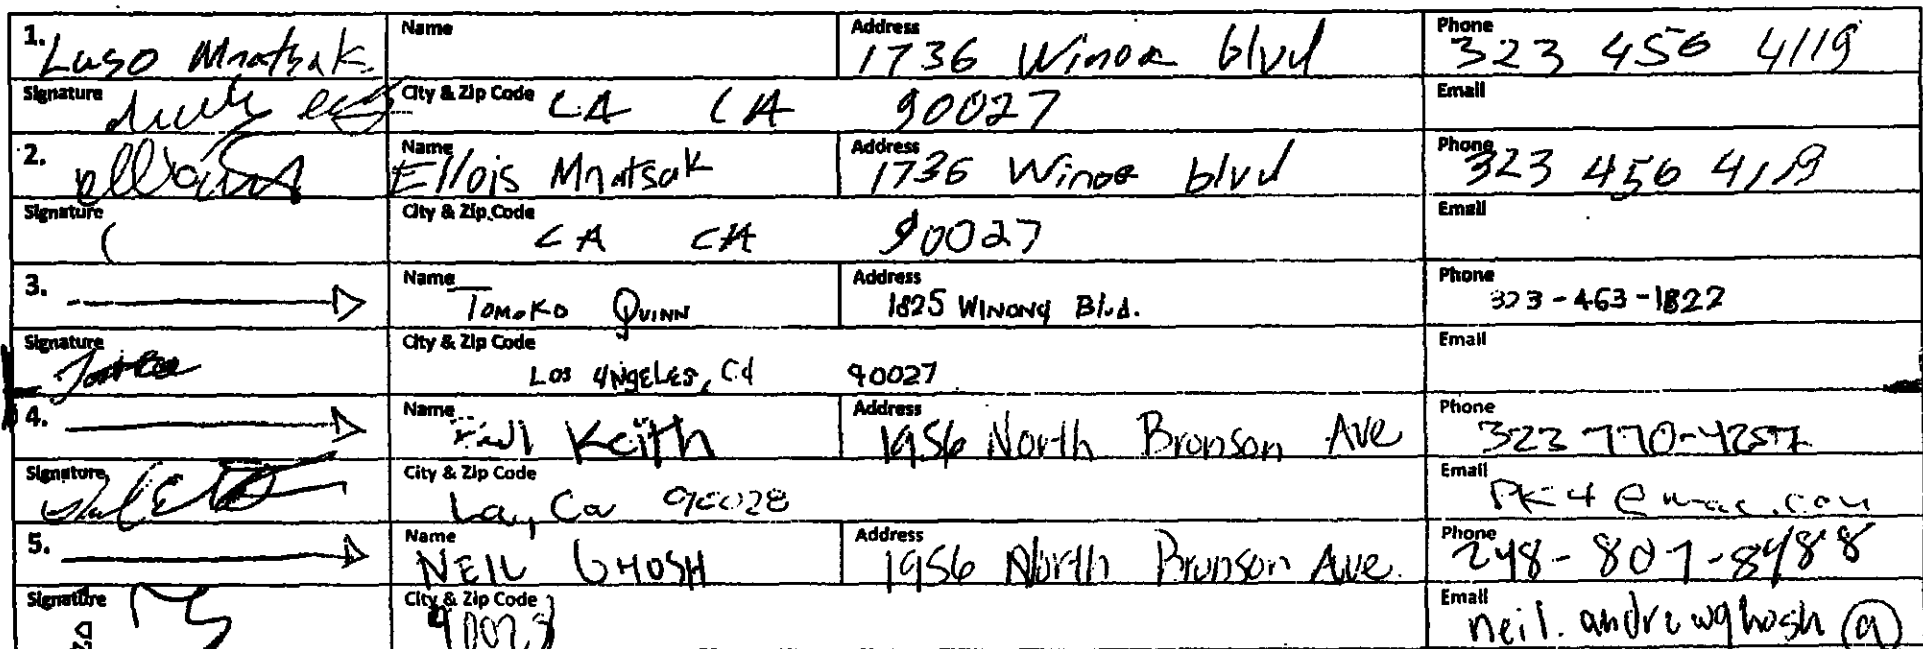 1. Luso Mnatsak. Name Address 1736 Winona blvd Phone 323 456 4119
Signature City & Zip Code LA CA 90027 Email
2. Name Ellois Mnatsak Address 1736 Winona blvd Phone 323 456 4119
Signature City & Zip Code LA CA 90027 Email
3. Name Tomoko Quinn Address 1825 Winona Blvd. Phone 323-463-1822
Signature City & Zip Code Los Angeles, CA 90027 Email
4. Name Keith Address 1956 North Bronson Ave Phone 323 770-4257
Signature City & Zip Code La, Ca 90028 Email PK4@mac.com
5. Name NEIL GHOSH Address 1956 North Bronson Ave. Phone 248-807-8488
Signature City & Zip Code 90028 Email neil.andrewghosh@